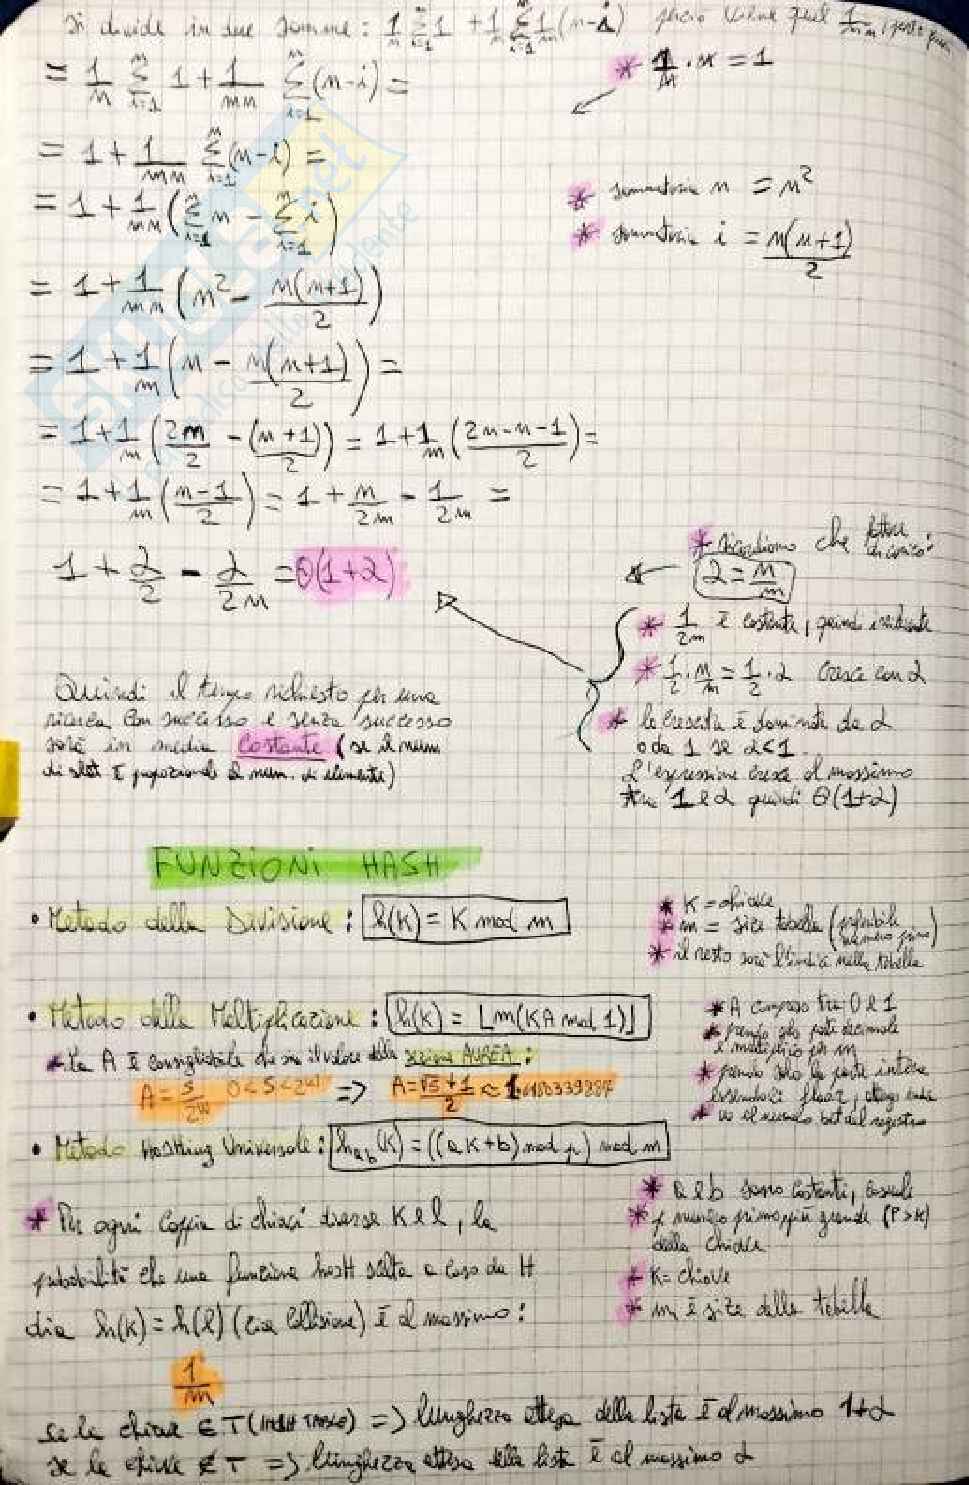 Si divide in due somme: 1/n Σ_{i=1}^{n} 1 + 1/n Σ_{i=1}^{n} 1/m (n-i)
= 1/n Σ_{i=1}^{n} 1 + 1/mn Σ_{i=1}^{n} (n-i) =
* 1/n · n = 1
= 1 + 1/mn Σ_{i=1}^{n} (n-i) =
= 1 + 1/mn (Σ_{i=1}^{n} n - Σ_{i=1}^{n} i)
* sommatoria n = n²
* sommatoria i = n(n+1)/2
= 1 + 1/mn (n² - n(n+1)/2)
= 1 + 1/m (n - n(n+1)/2) =
= 1 + 1/m (2n/2 - (n+1)/2) = 1 + 1/m (2n-n-1/2) =
= 1 + 1/m (n-1/2) = 1 + n/2m - 1/2m =
1 + α/2 - α/2n = Θ(1+α)
* ricordiamo che fattore di carico:
α = n/m
* 1/2m è costante, quindi
* 1/2 · n/m = 1/2 · α cresce con α
* la crescita è dominata da α
o da 1 se α<1.
L'espressione cresce al massimo
1 e α quindi Θ(1+α)
Quindi il tempo richiesto per una
ricerca con successo e senza successo
sarà in media costante (se il num.
di slot è proporzionale al num. di elementi)
FUNZIONI HASH
• Metodo della Divisione: h(k) = K mod m
* K = chiave
* m = size tabella (preferibile numero primo)
* il resto sarà l'indice nella tabella
• Metodo della Moltiplicazione: h(k) = ⌊m(KA mod 1)⌋
* A compreso tra 0 e 1
* prendo solo parte decimale
e moltiplico per m
* prendo solo la parte intera
essendoci floor,
*La A è consigliabile che sia il valore della sezione AUREA:
A = s/2^w 0<S<2^w => A = √5+1/2 ≈ 1.6180339887
• Metodo HasHing Universale: h_ab(k) = ((ak+b) mod p) mod m
* a e b sono costanti, casuali
* p numero primo più grande (P>K)
della chiave
* K = chiave
* m è size della tabella
* Per ogni coppia di chiavi diverse K e l, la
probabilità che una funzione hasH scelta a caso da H
dia h(k) = h(l) (cioè collisione) è al massimo:
1/m
se la chiave ∈ T (HASH TABLE) => lunghezza attesa della lista è al massimo 1+α
se la chiave ∉ T => lunghezza attesa della lista è al massimo α